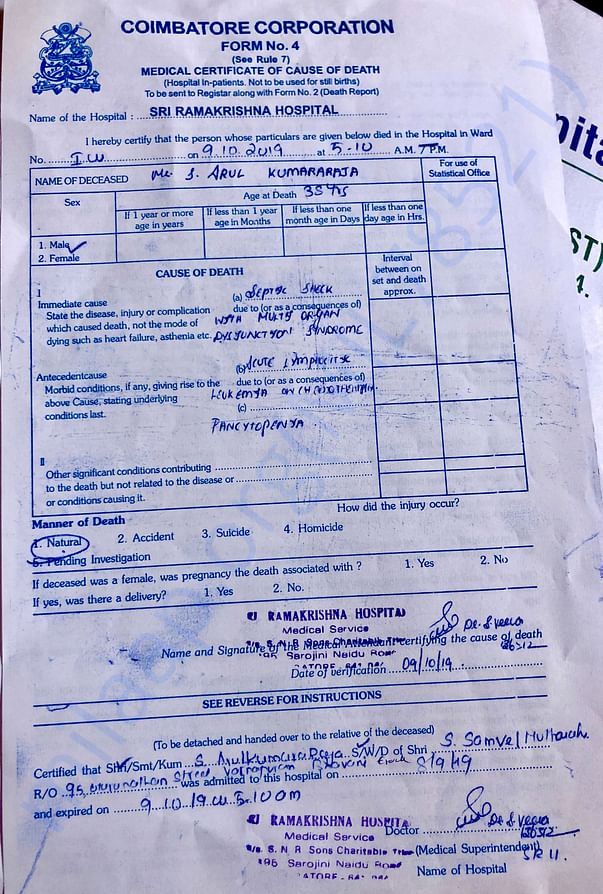 COIMBATORE CORPORATION
FORM No. 4
(See Rule 7)
MEDICAL CERTIFICATE OF CAUSE OF DEATH
(Hospital In-patients. Not to be used for still births)
To be sent to Registrar along with Form No. 2 (Death Report)
Name of the Hospital : SRI RAMAKRISHNA HOSPITAL
I hereby certify that the person whose particulars are given below died in the Hospital in Ward
No. I.W on 9.10.2019 at 5-10 A.M. / P.M.
NAME OF DECEASED Mr. S. ARUL KUMARARAJA
For use of Statistical Office
Sex
Age at Death 38 yrs
If 1 year or more age in years
If less than 1 year age in Months
If less than one month age in Days
If less than one day age in Hrs.
1. Male
2. Female
CAUSE OF DEATH
Interval between on set and death approx.
I
Immediate cause (a) SEPTIC SHOCK
State the disease, injury or complication due to (or as a consequences of)
which caused death, not the mode of WITH MULTI ORGAN
dying such as heart failure, asthenia etc. DYSFUNCTION SYNDROME
Antecedentcause (b) ACUTE LYMPHOCYTIC
Morbid conditions, if any, giving rise to the due to (or as a consequences of)
above Cause, stating underlying LEUKEMIA ON CHEMOTHERAPY
conditions last. (c)
PANCYTOPENIA
II
Other significant conditions contributing
to the death but not related to the disease or
or conditions causing it.
How did the injury occur?
Manner of Death
1. Natural 2. Accident 3. Suicide 4. Homicide
5. Pending Investigation
If deceased was a female, was pregnancy the death associated with ? 1. Yes 2. No
If yes, was there a delivery? 1. Yes 2. No.
RAMAKRISHNA HOSPITAL
Medical Service
S. N. R Sons Charitable
Sarojini Naidu Road
Dr. S Veera
Name and Signature of the Medical certifying the cause of death
Date of verification 09/10/19
SEE REVERSE FOR INSTRUCTIONS
(To be detached and handed over to the relative of the deceased)
Certified that Shri/Smt/Kum S. Arulkumara Raja S/W/D of Shri S Samvel
R/O 95 Street was admitted to this hospital on 8/9/19
and expired on 9.10.19
RAMAKRISHNA HOSPITAL
Medical Service
S. N R Sons Charitable
395 Sarojini Naidu Road
Doctor Dr S Veera
(Medical Superintendent)
Name of Hospital SRH